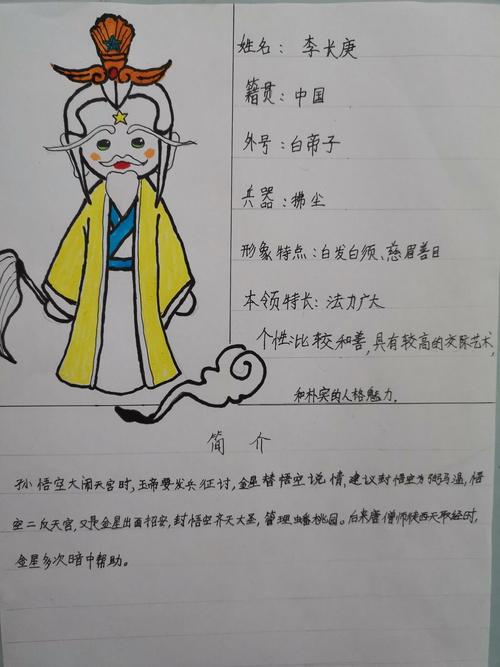 姓名：李长庚
籍贯：中国
外号：白帝子
兵器：拂尘
形象特点：白发白须、慈眉善目
本领特长：法力广大
个性：比较和善，具有较高的交际艺术，
和朴实的人格魅力.
简介
孙悟空大闹天宫时，玉帝要发兵征讨，金星替悟空说情，建议封悟空为弼马温，悟
空二反天宫，又是金星出面招安，封悟空齐天大圣，管理蟠桃园。后来唐僧师徒西天取经时，
金星多次暗中帮助。